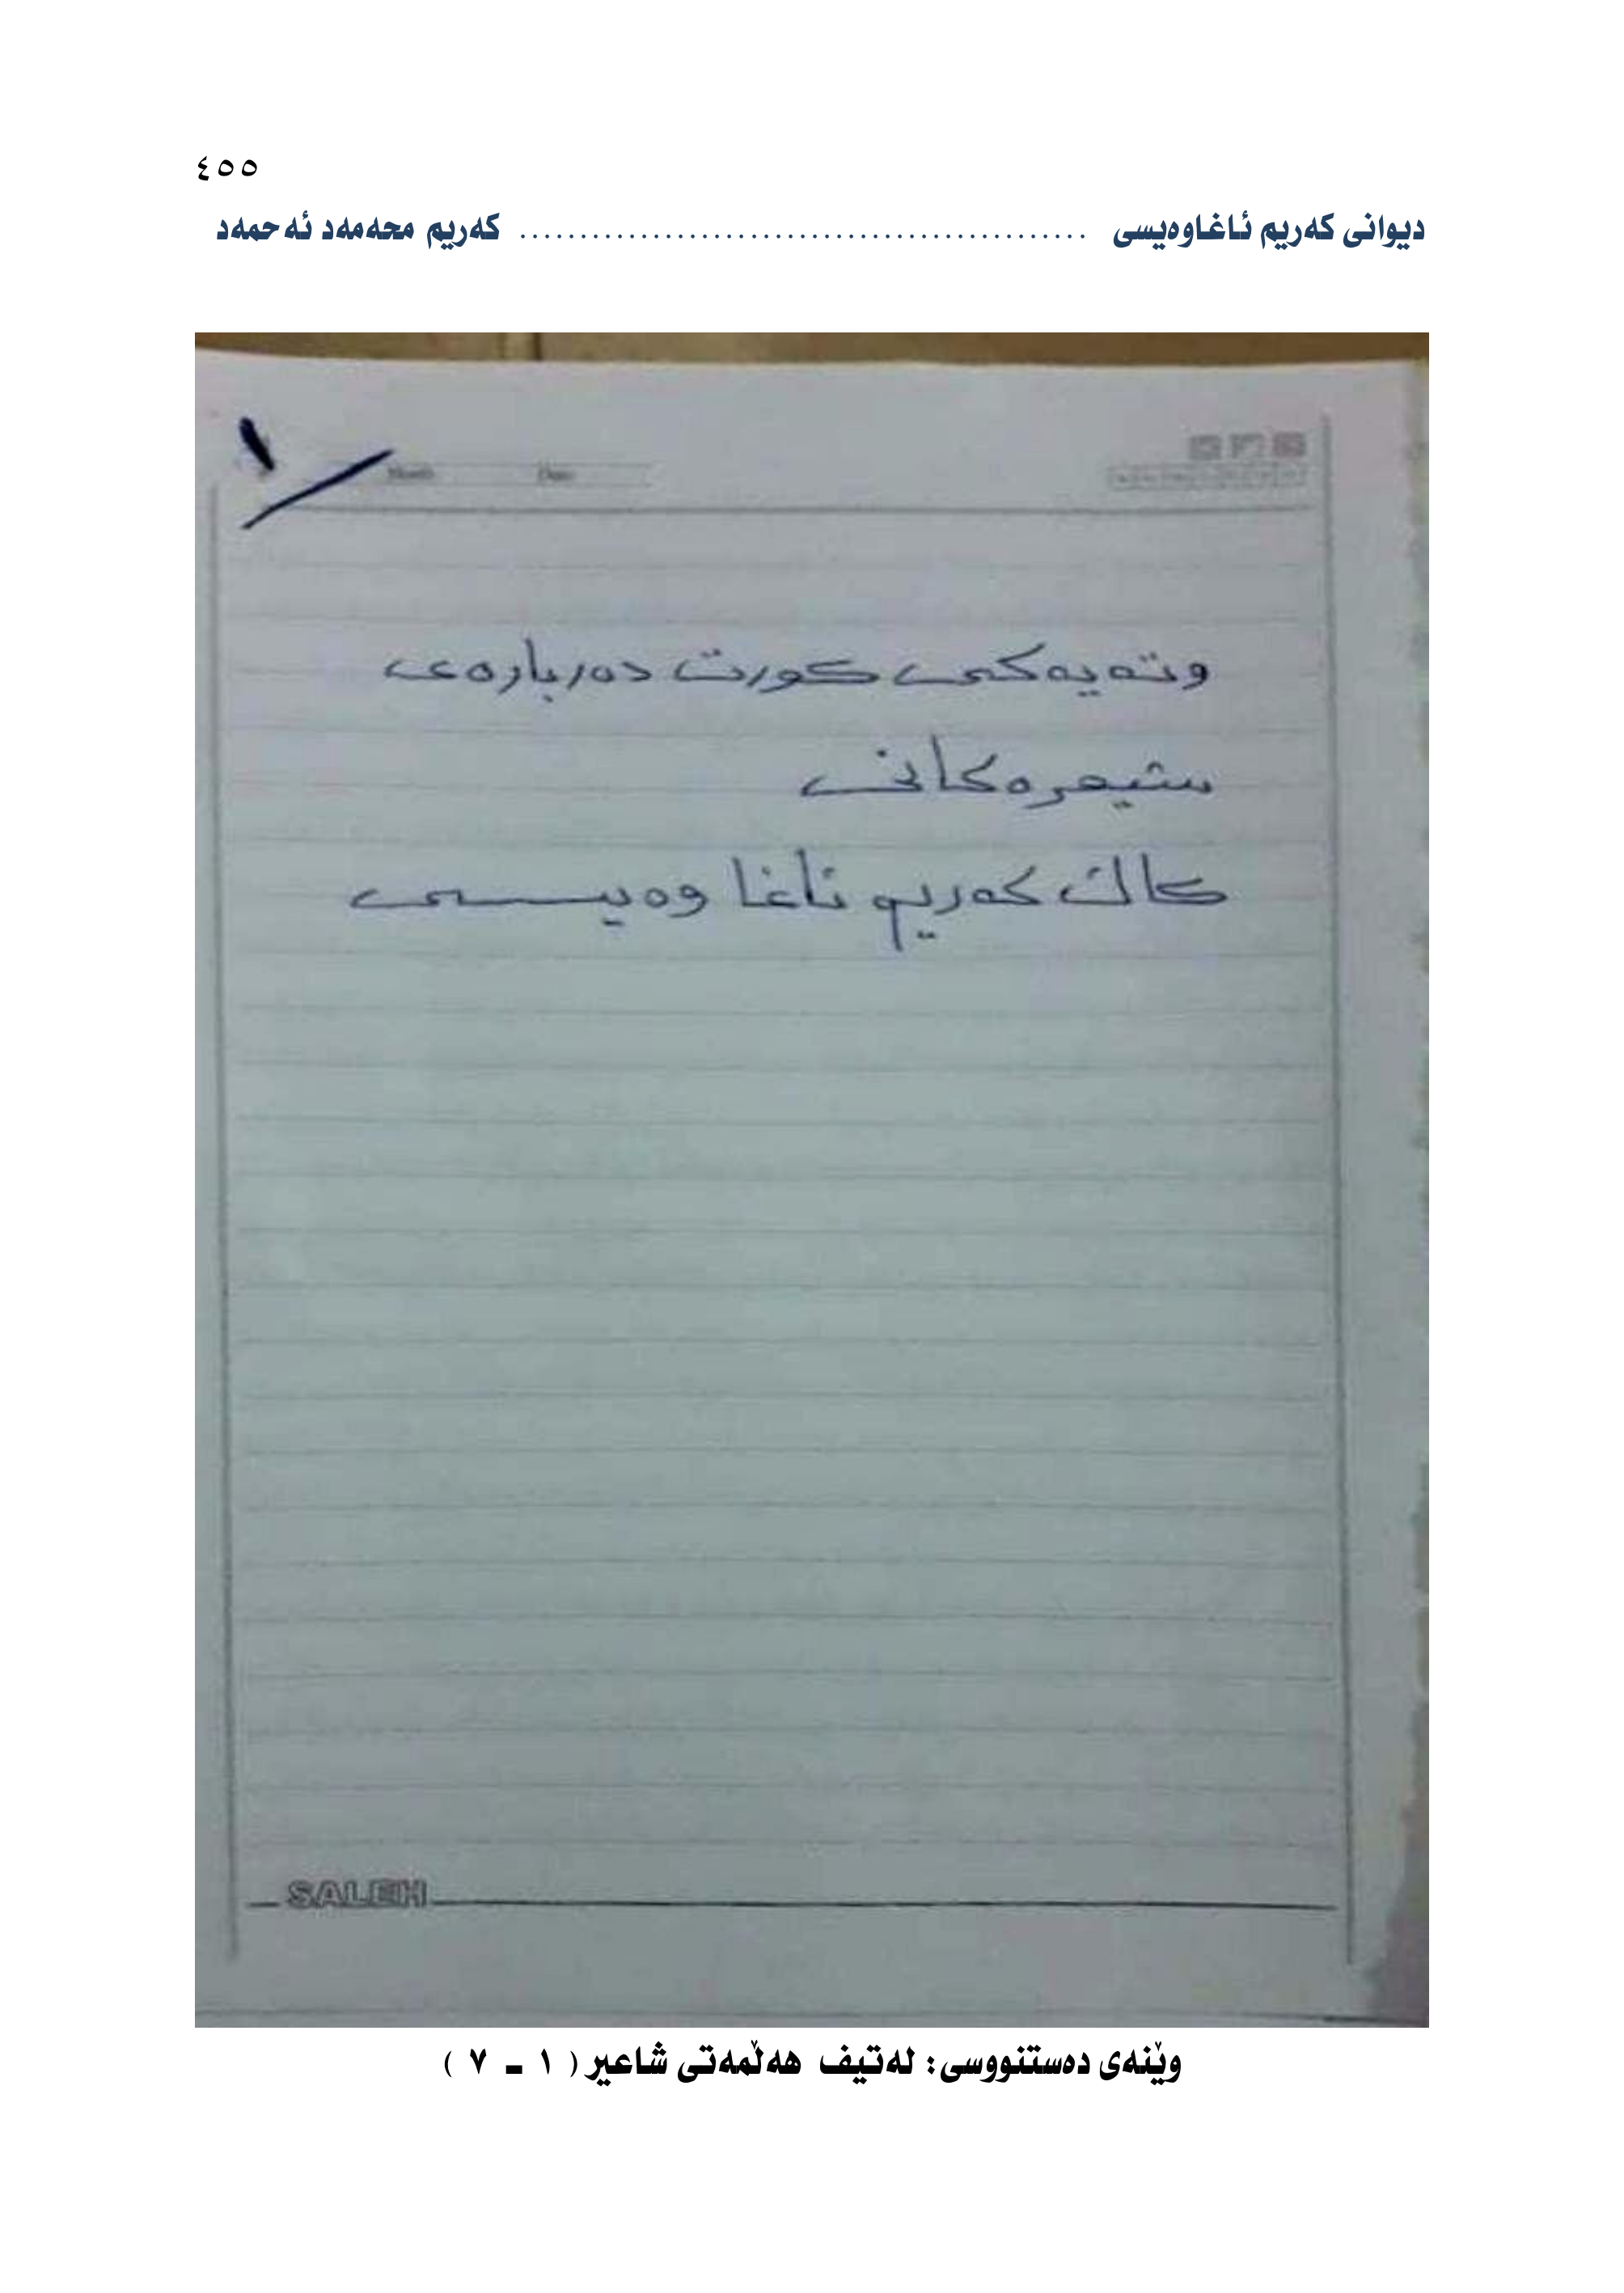 ٤٥٥
دیوانی کەریم ئاغاوەیسی ............................................... کەریم محەمەد ئەحمەد
١
وتەیەکی کورت دەربارەی
شیعرەکانی
کاك کەریم ئاغا وەیسی
SALEH
وێنەی دەستنووسی: لەتیف هەڵمەتی شاعیر ( ١ ـ ٧ )